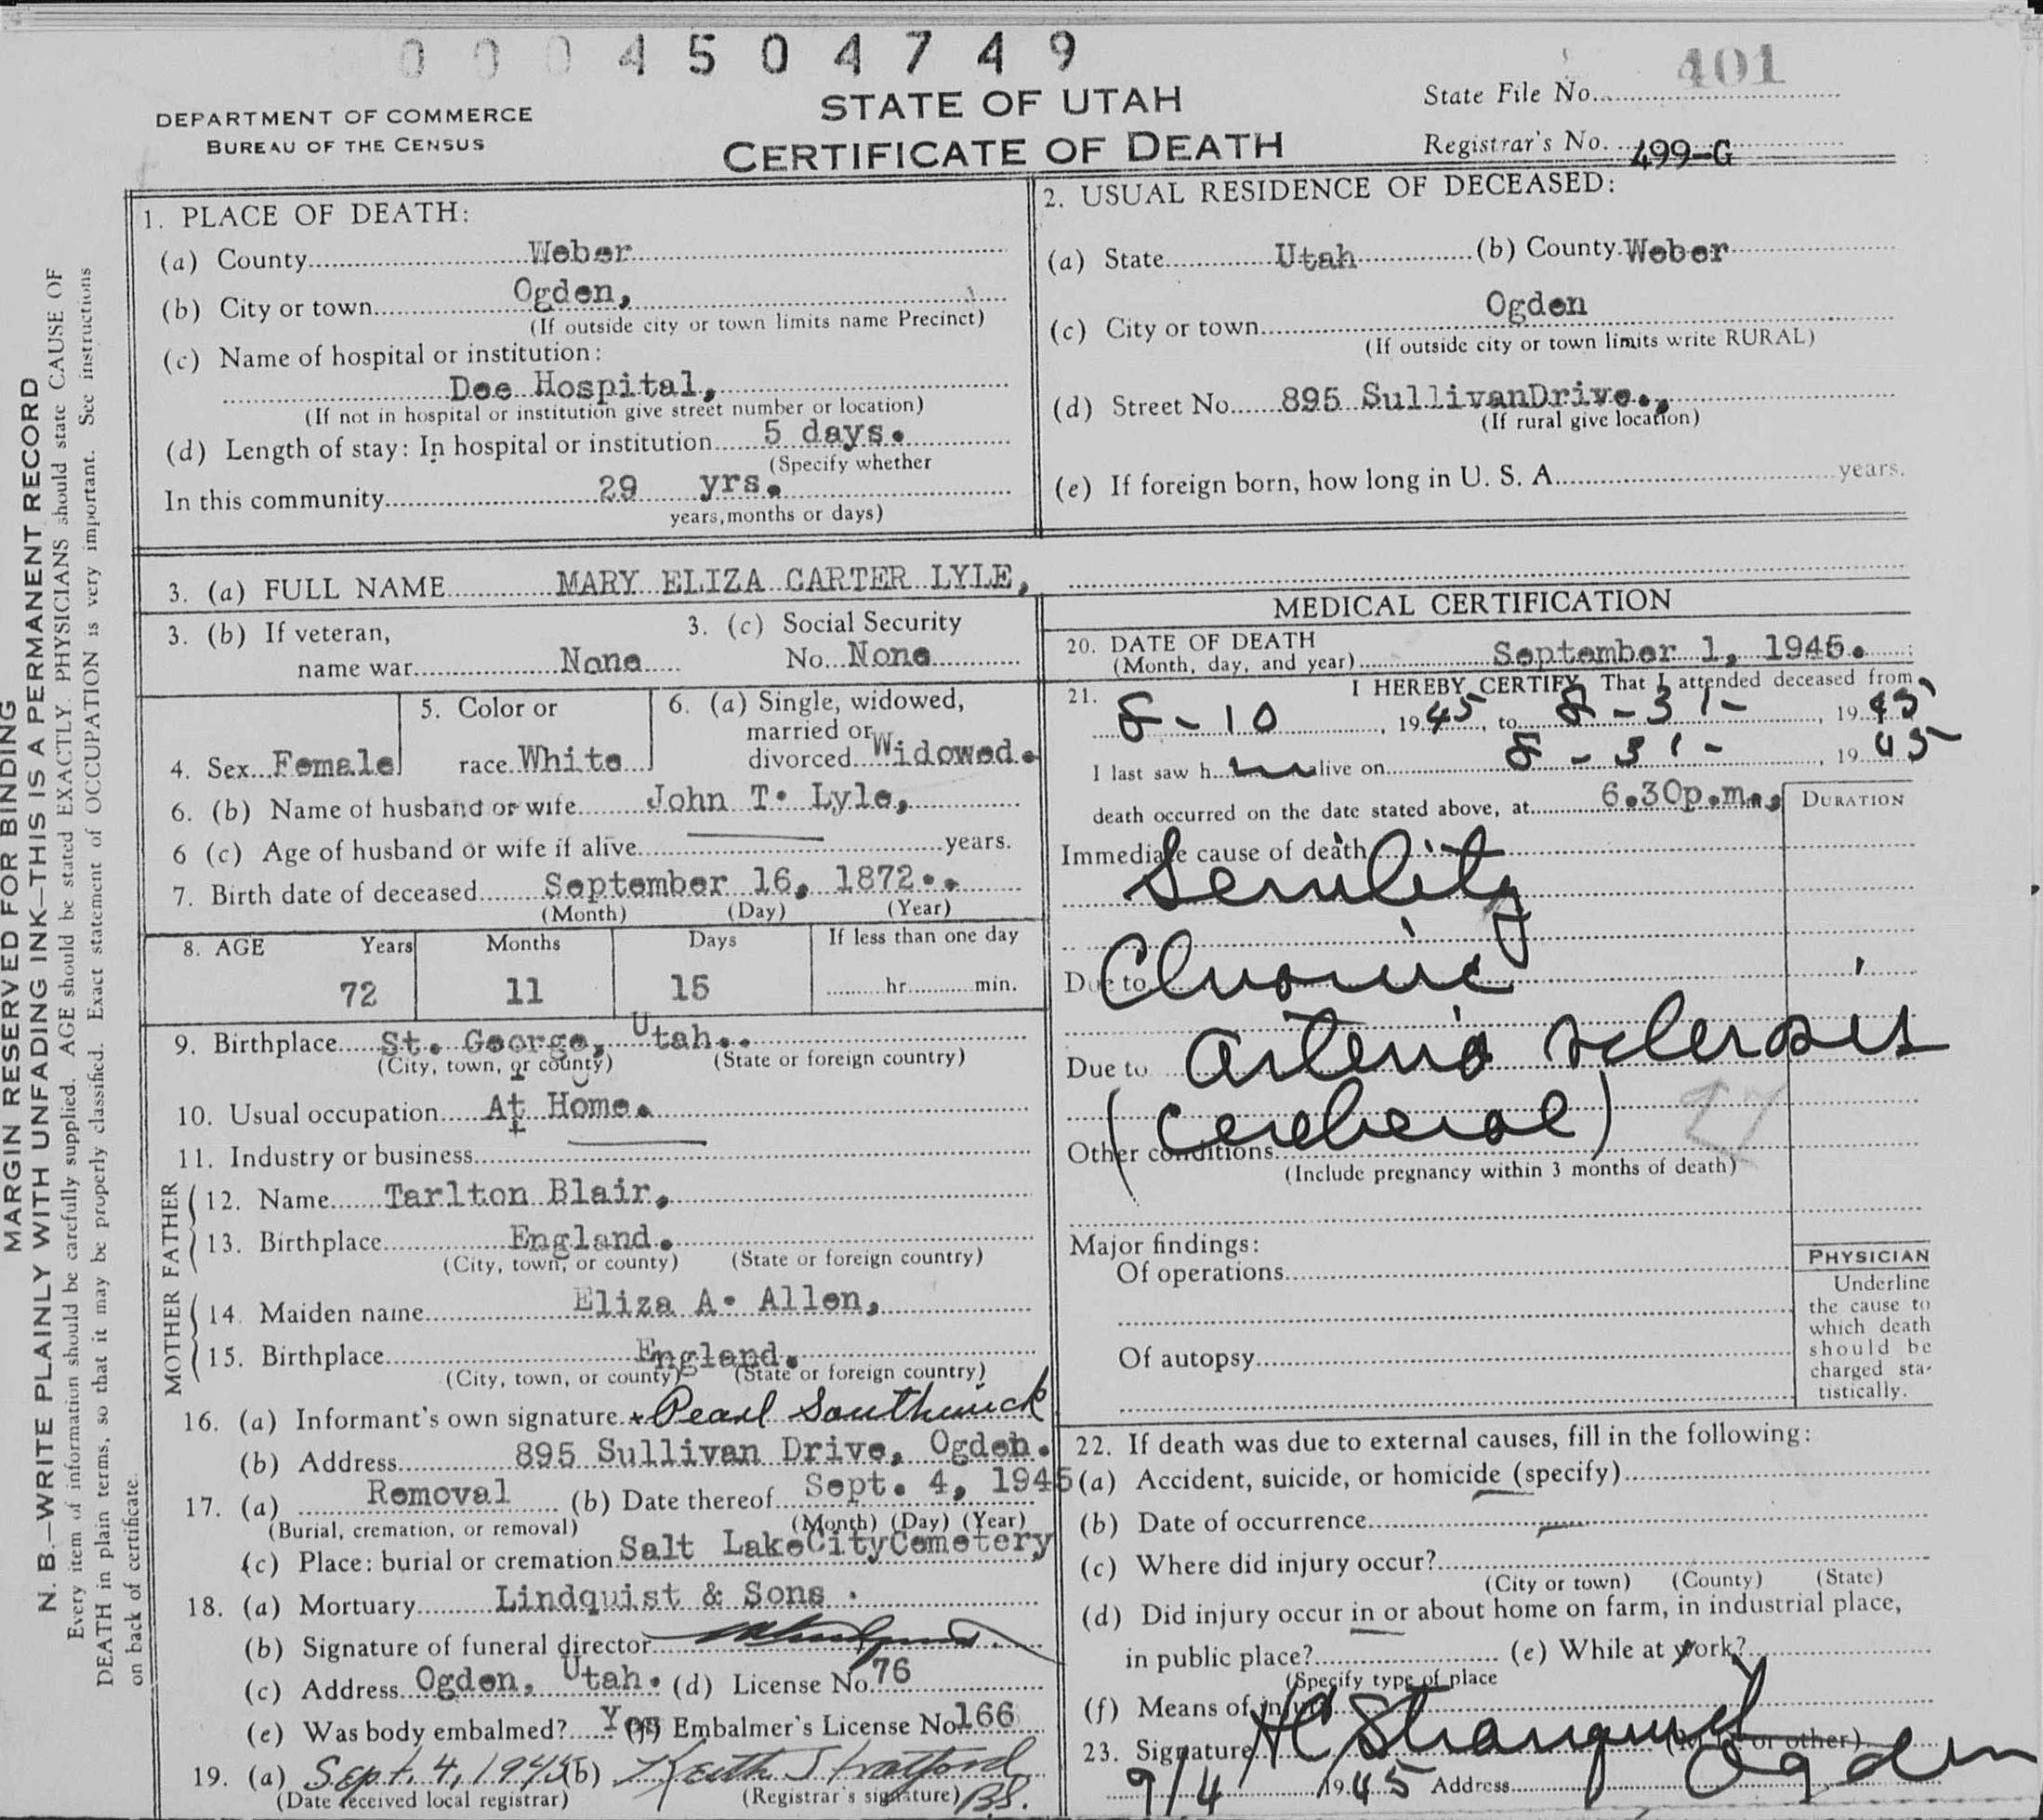 0004504749
401
DEPARTMENT OF COMMERCE
BUREAU OF THE CENSUS
STATE OF UTAH
CERTIFICATE OF DEATH
State File No.
Registrar's No. 499-G
MARGIN RESERVED FOR BINDING
N. B.—WRITE PLAINLY WITH UNFADING INK—THIS IS A PERMANENT RECORD
Every item of information should be carefully supplied. AGE should be stated EXACTLY. PHYSICIANS should state CAUSE OF
DEATH in plain terms, so that it may be properly classified. Exact statement of OCCUPATION is very important. See instructions
on back of certificate.
1. PLACE OF DEATH:
(a) County Weber
(b) City or town Ogden,
(If outside city or town limits name Precinct)
(c) Name of hospital or institution:
Dee Hospital,
(If not in hospital or institution give street number or location)
(d) Length of stay: In hospital or institution 5 days.
(Specify whether
In this community 29 yrs.
years, months or days)
2. USUAL RESIDENCE OF DECEASED:
(a) State Utah (b) County Weber
(c) City or town Ogden
(If outside city or town limits write RURAL)
(d) Street No. 895 SullivanDrive.,
(If rural give location)
(e) If foreign born, how long in U. S. A. years.
3. (a) FULL NAME MARY ELIZA CARTER LYLE,
3. (b) If veteran,
name war None
3. (c) Social Security
No. None
4. Sex Female
5. Color or
race White
6. (a) Single, widowed,
married or
divorced Widowed.
6. (b) Name of husband or wife John T. Lyle,
6 (c) Age of husband or wife if alive years.
7. Birth date of deceased September 16, 1872..
(Month) (Day) (Year)
8. AGE Years Months Days If less than one day
72 11 15 hr. min.
9. Birthplace St. George, Utah..
(City, town, or county) (State or foreign country)
10. Usual occupation At Home.
11. Industry or business
FATHER
12. Name Tarlton Blair,
13. Birthplace England.
(City, town, or county) (State or foreign country)
MOTHER
14. Maiden name Eliza A. Allen,
15. Birthplace England.
(City, town, or county) (State or foreign country)
16. (a) Informant's own signature Pearl Southwick
(b) Address 895 Sullivan Drive, Ogden.
17. (a) Removal (b) Date thereof Sept. 4, 1945
(Burial, cremation, or removal) (Month) (Day) (Year)
(c) Place: burial or cremation Salt LakeCityCemetery
18. (a) Mortuary Lindquist & Sons .
(b) Signature of funeral director
(c) Address Ogden, Utah. (d) License No. 76
(e) Was body embalmed? Yes (f) Embalmer's License No. 166
19. (a) Sept. 4, 1945 (b) Keith Stratford
(Date received local registrar) (Registrar's signature) B.S.
MEDICAL CERTIFICATION
20. DATE OF DEATH
(Month, day, and year) September 1, 1945.
21. I HEREBY CERTIFY, That I attended deceased from
8-10, 1945, to 8-31-, 1945
I last saw h alive on 8-31-, 1945
death occurred on the date stated above, at 6.30p.m.,
DURATION
Immediate cause of death
Senility
Due to Chronic
Due to arterio sclerosis
(cerebral) 97
Other conditions
(Include pregnancy within 3 months of death)
Major findings:
Of operations
Of autopsy
PHYSICIAN
Underline
the cause to
which death
should be
charged sta-
tistically.
22. If death was due to external causes, fill in the following:
(a) Accident, suicide, or homicide (specify)
(b) Date of occurrence
(c) Where did injury occur?
(City or town) (County) (State)
(d) Did injury occur in or about home on farm, in industrial place,
in public place? (e) While at work?
(Specify type of place
(f) Means of injury
23. Signature (M. D. or other)
9/4 1945 Address Ogden